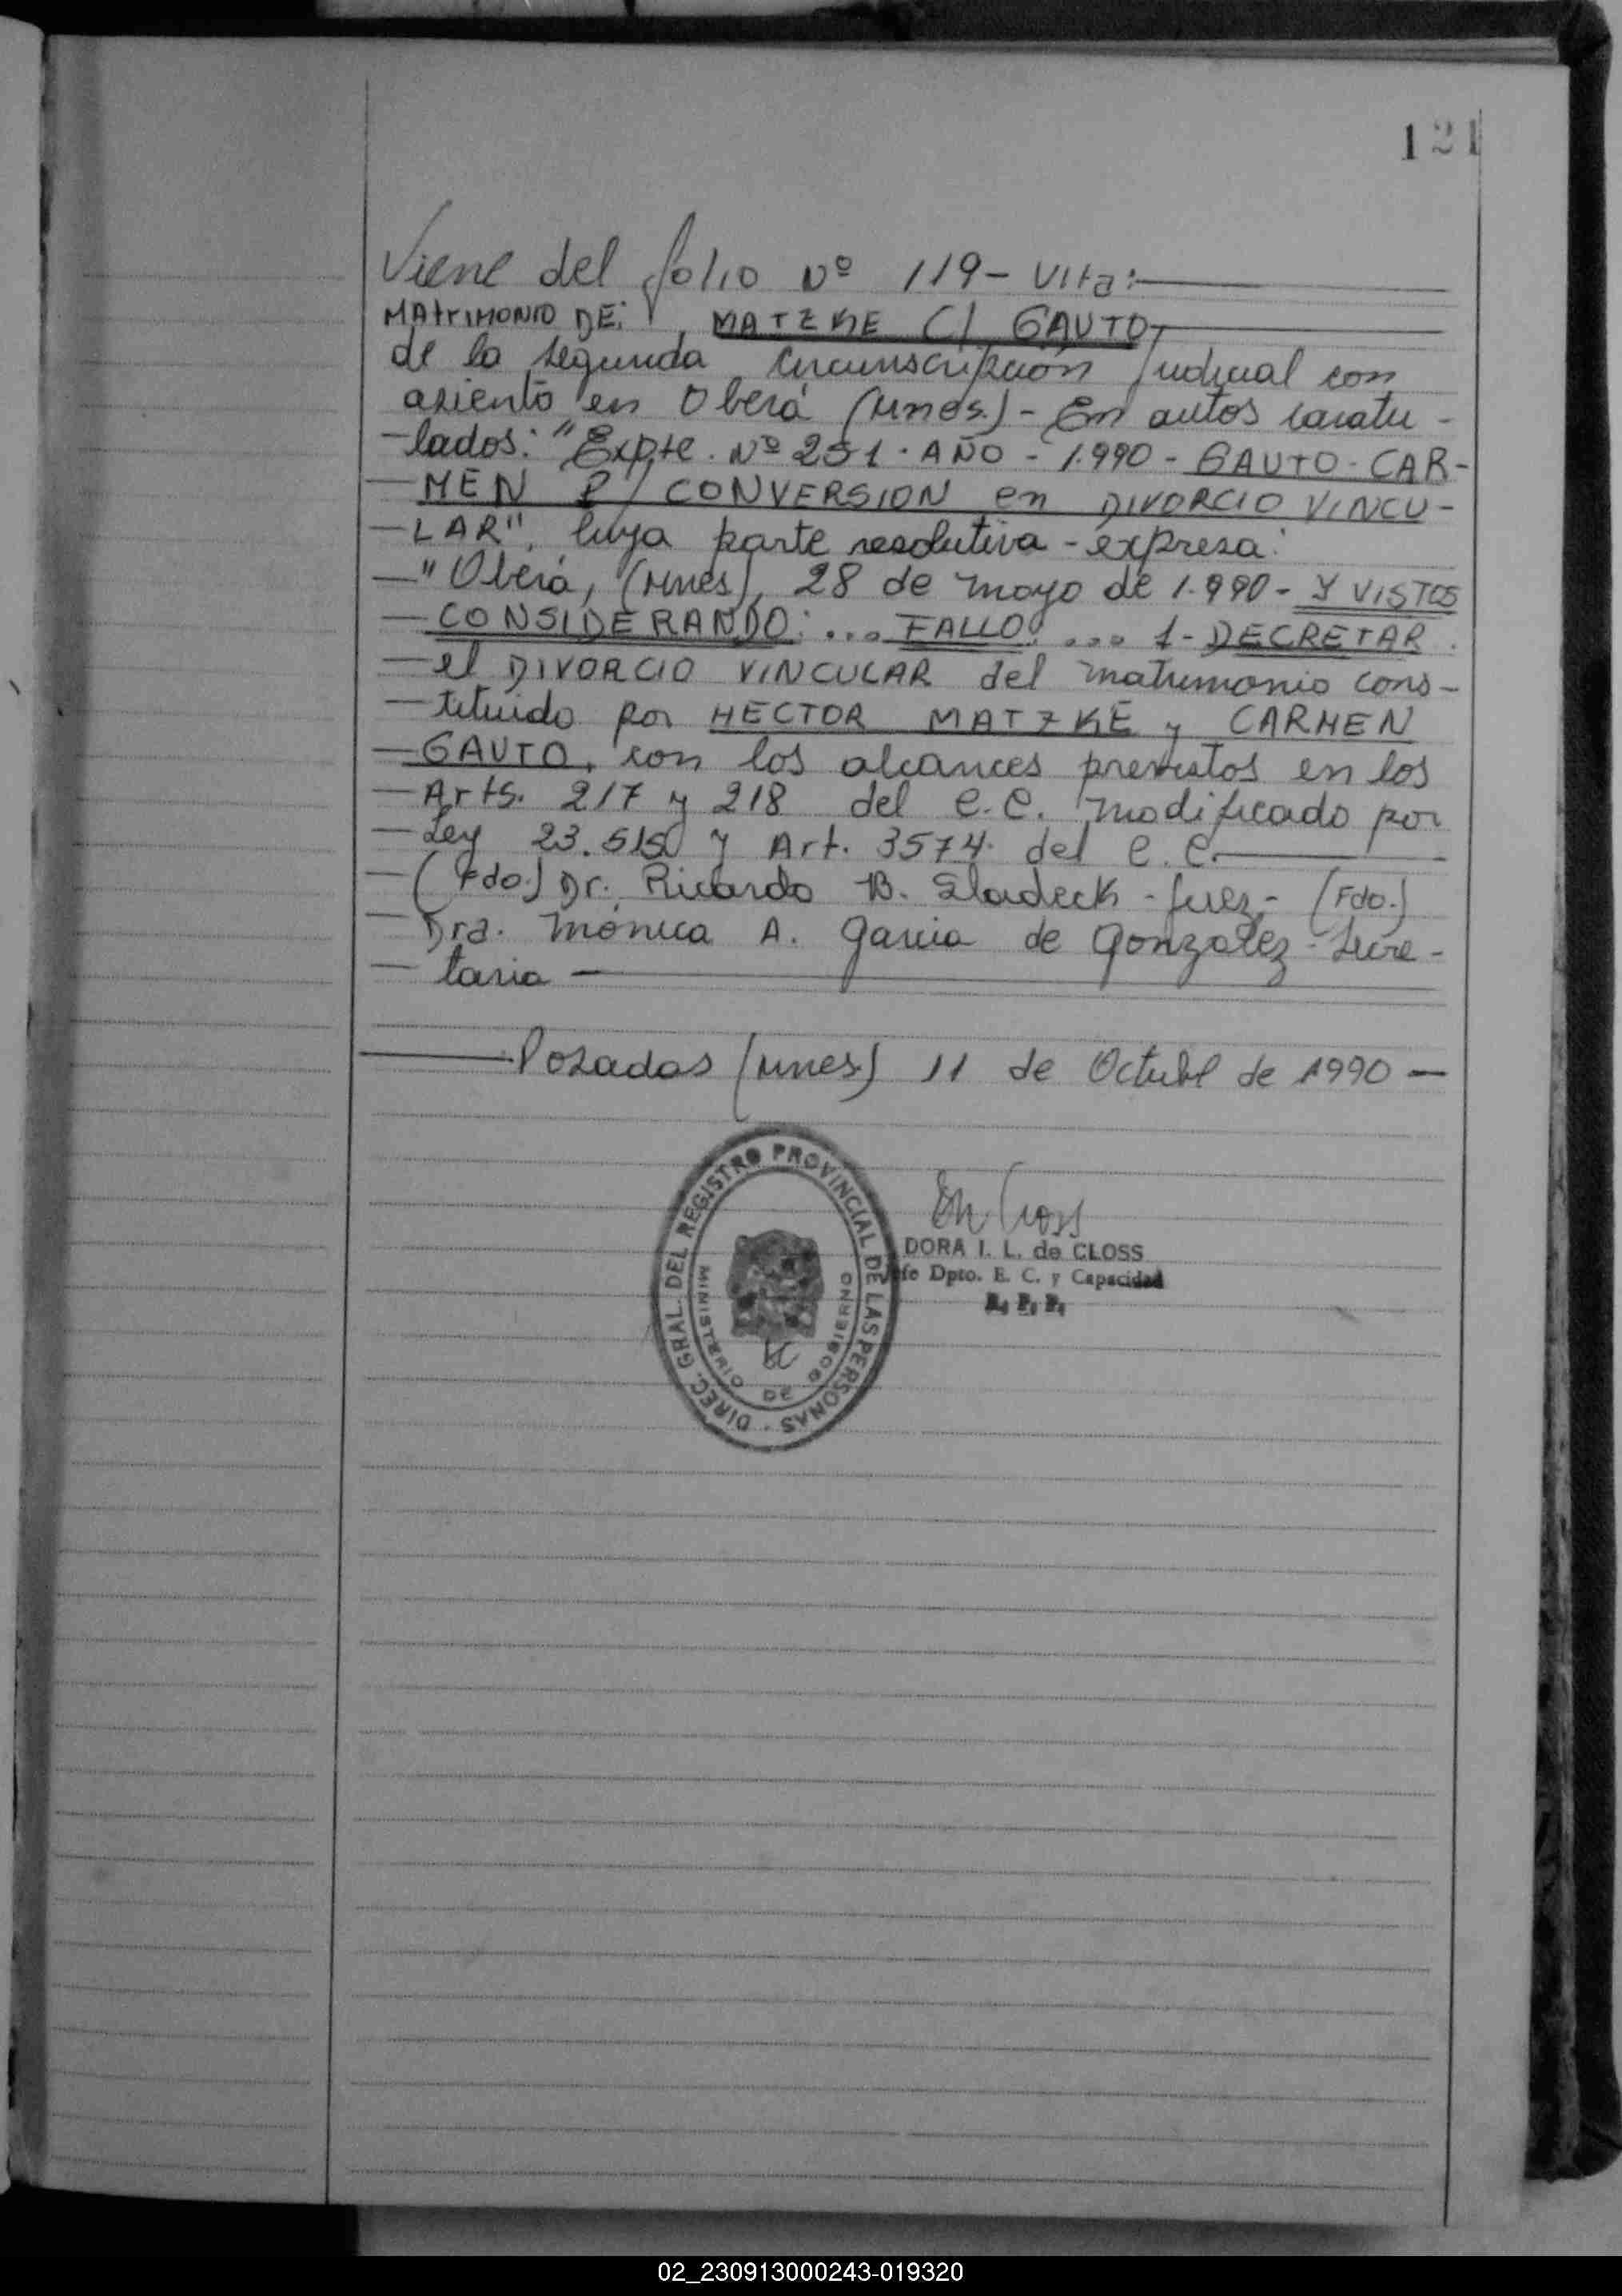 121
Viene del folio Nº 119- Vlta:
MATRIMONIO DE: MATZKE C/ GAUTO,
de la segunda circunscripción judicial con
asiento en Oberá (Mnes.) - En autos caratu-
-lados: "Expte. Nº 251. AÑO - 1.990 - GAUTO - CAR-
-MEN P/ CONVERSION en DIVORCIO VINCU-
-LAR", cuya parte resolutiva - expresa:
-"Oberá, (Mnes), 28 de mayo de 1.990 - Y VISTOS
-CONSIDERANDO: ... FALLO: ... 1- DECRETAR
-el DIVORCIO VINCULAR del matrimonio cons-
-tituido por HECTOR MATZKE y CARMEN
-GAUTO, con los alcances previstos en los
-Arts. 217 y 218 del C.C. modificado por
-Ley 23.515 y Art. 3574. del C.C.
-(Fdo.) Dr. Ricardo B. Sladeck - Juez - (Fdo.)
-Dra. Mónica A. Garcia de Gonzalez - Secre-
-taria
Posadas (Mnes.) 11 de Octubre de 1990 -
DIREC. GRAL. DEL REGISTRO PROVINCIAL DE LAS PERSONAS
MINISTERIO DE GOBIERNO
DORA I. L. de CLOSS
Jefe Dpto. E. C. y Capacidad
R. P. P.
02_230913000243-019320